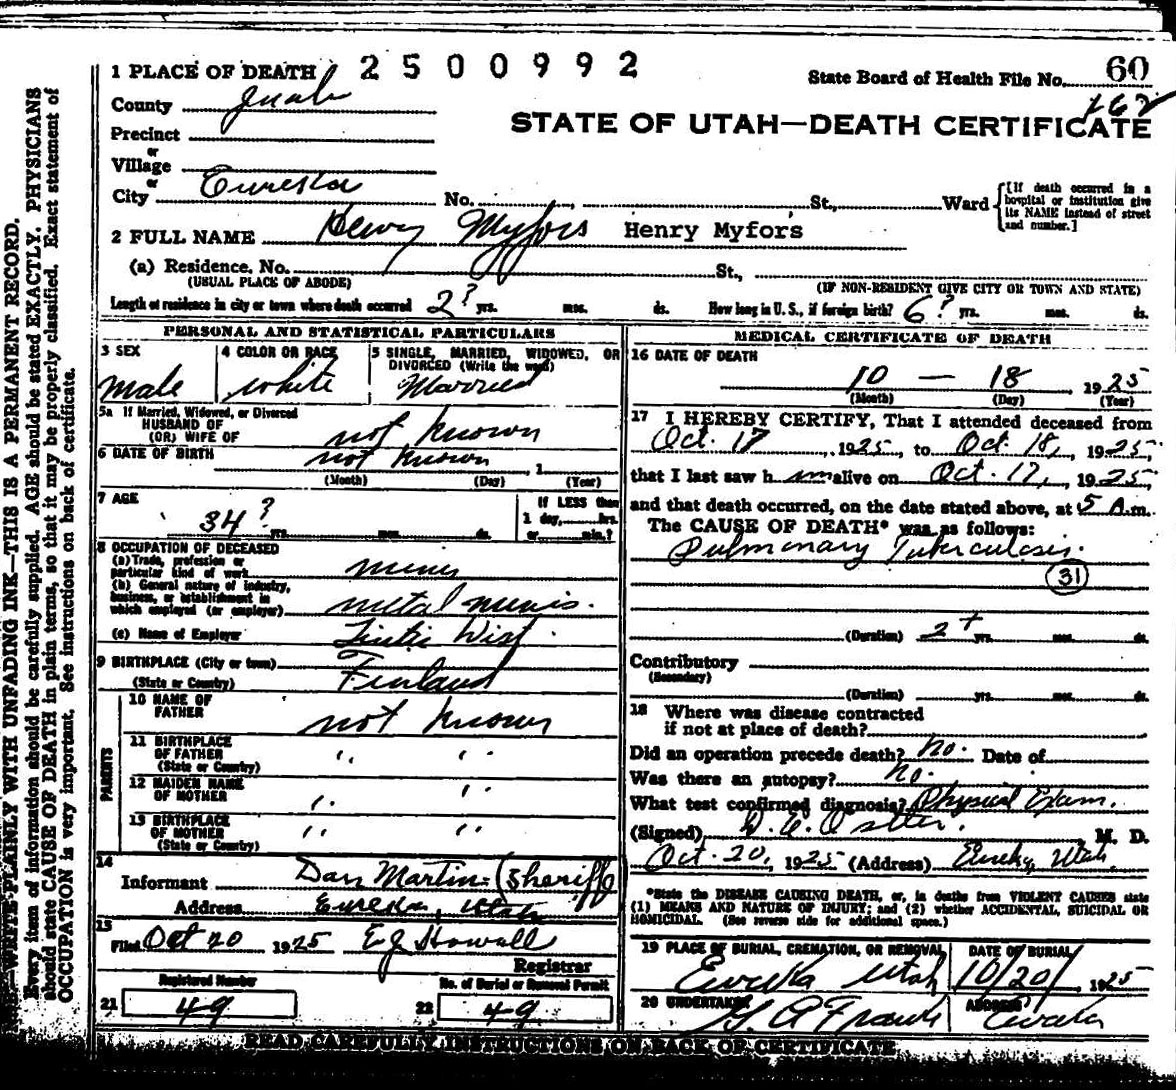 1 PLACE OF DEATH 2500992
State Board of Health File No. 60
County Juab
162
STATE OF UTAH—DEATH CERTIFICATE
Precinct
or
Village
or
City Eureka No. St., Ward
[If death occurred in a hospital or institution give its NAME instead of street and number.]
2 FULL NAME Henry Myfors Henry Myfors
(a) Residence. No. St.,
(USUAL PLACE OF ABODE) (IF NON-RESIDENT GIVE CITY OR TOWN AND STATE)
Length of residence in city or town where death occurred 2? yrs. mos. ds. How long in U. S., if foreign birth? 6? yrs. mos. ds.
PERSONAL AND STATISTICAL PARTICULARS
3 SEX
male
4 COLOR OR RACE
white
5 SINGLE, MARRIED, WIDOWED, OR
DIVORCED (Write the word)
Married
5a If Married, Widowed, or Divorced
HUSBAND OF
(OR) WIFE OF not known
6 DATE OF BIRTH not known, 1
(Month) (Day) (Year)
7 AGE
34? yrs. mos. ds.
If LESS than
1 day, hrs.
or min.?
8 OCCUPATION OF DECEASED
(a) Trade, profession or
particular kind of work miner
(b) General nature of industry,
business, or establishment in
which employed (or employer) metal mines.
(c) Name of Employer Tintic Dist.
9 BIRTHPLACE (City or town)
(State or Country) Finland
PARENTS
10 NAME OF
FATHER not known
11 BIRTHPLACE
OF FATHER " "
(State or Country)
12 MAIDEN NAME
OF MOTHER " "
13 BIRTHPLACE
OF MOTHER " "
(State or Country)
14
Informant Dan Martin (Sheriff)
Address Eureka, Utah
15
Filed Oct 20 1925 E J Howall
Registrar
Registered Number
21 49
No. of Burial or Removal Permit
22 49
MEDICAL CERTIFICATE OF DEATH
16 DATE OF DEATH
10 — 18 1925
(Month) (Day) (Year)
17 I HEREBY CERTIFY, That I attended deceased from
Oct. 17, 1925, to Oct. 18, 1925,
that I last saw h im alive on Oct. 17, 1925,
and that death occurred, on the date stated above, at 5 A.m.
The CAUSE OF DEATH* was as follows:
Pulmonary Tuberculosis.
31
(Duration) 2+ yrs. mos. ds.
Contributory
(Secondary)
(Duration) yrs. mos. ds.
18 Where was disease contracted
if not at place of death?
Did an operation precede death? No. Date of
Was there an autopsy? No.
What test confirmed diagnosis? Physical Exam.
(Signed) D. E. Ostler. M. D.
Oct. 20, 1925 (Address) Eureka, Utah
*State the DISEASE CAUSING DEATH, or, in deaths from VIOLENT CAUSES state
(1) MEANS AND NATURE OF INJURY; and (2) whether ACCIDENTAL, SUICIDAL OR
HOMICIDAL. (See reverse side for additional space.)
19 PLACE OF BURIAL, CREMATION, OR REMOVAL
Eureka Utah
DATE OF BURIAL
10/20/, 1925
20 UNDERTAKER
G. A Frank
ADDRESS
Eureka
READ CAREFULLY INSTRUCTIONS ON BACK OF CERTIFICATE
WRITE PLAINLY WITH UNFADING INK—THIS IS A PERMANENT RECORD.
Every item of information should be carefully supplied. AGE should be stated EXACTLY. PHYSICIANS
should state CAUSE OF DEATH in plain terms, so that it may be properly classified. Exact statement of
OCCUPATION is very important. See instructions on back of certificate.